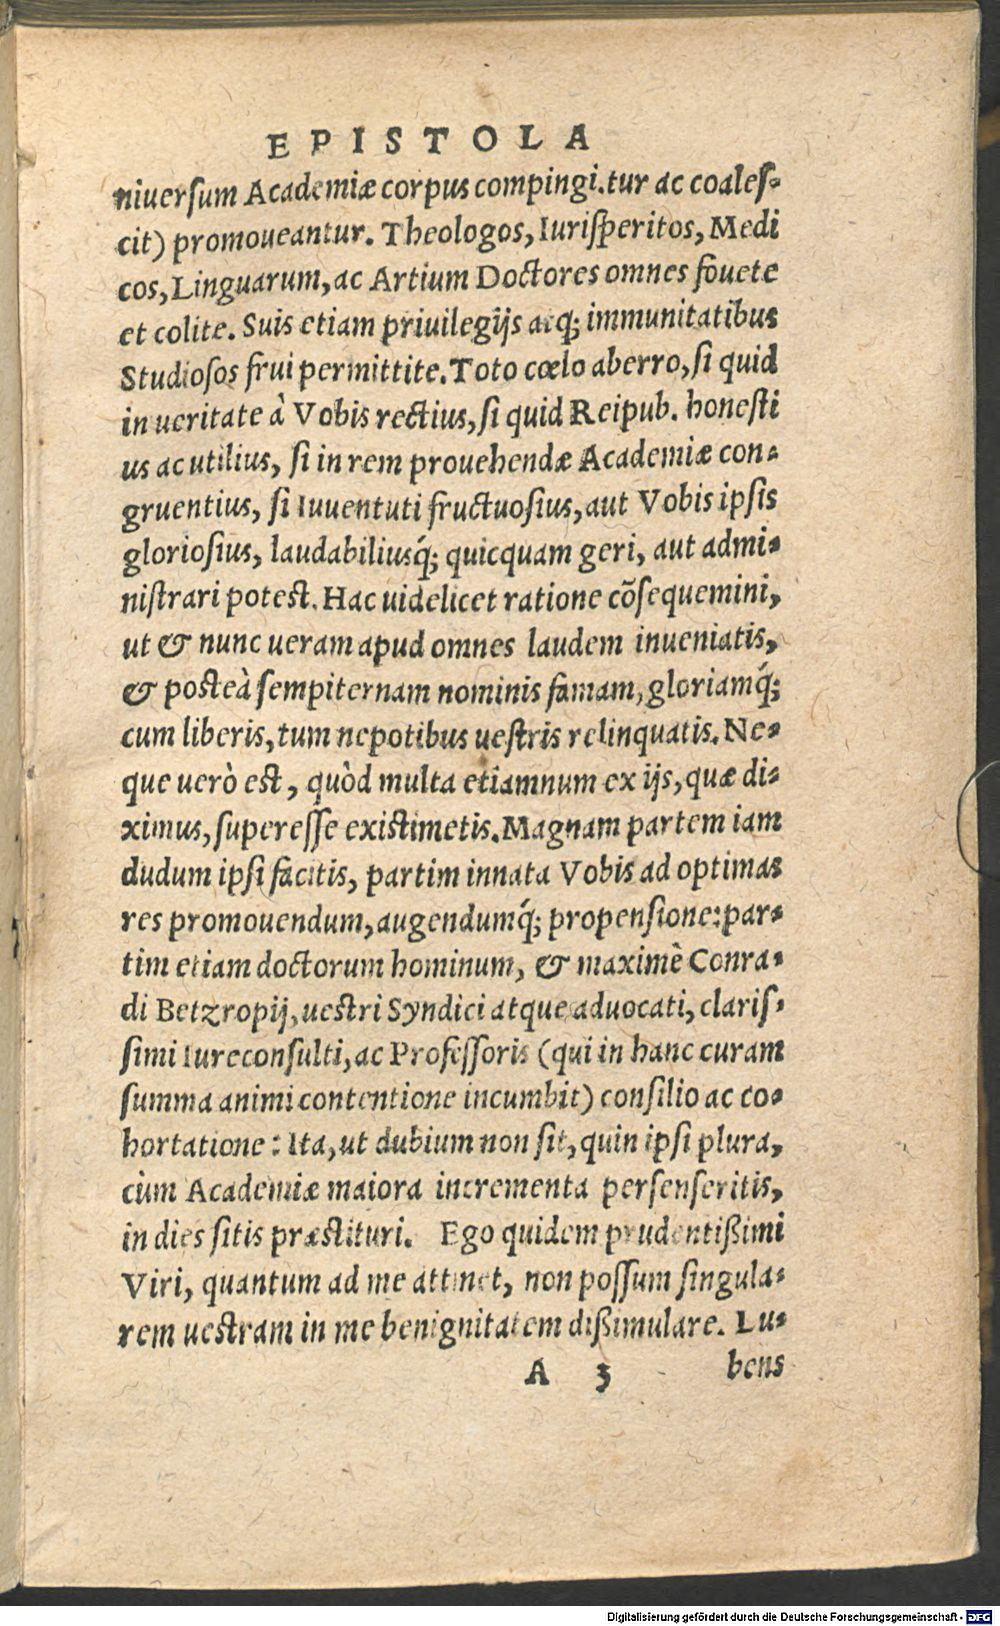 EPISTOLA
niuersum Academiæ corpus compingi.tur ac coales-
cit) promoueantur. Theologos, Iurisperitos, Medi
cos, Linguarum, ac Artium Doctores omnes fouete
et colite. Suis etiam priuilegijs atq; immunitatibus
Studiosos frui permittite. Toto cœlo aberro, si quid
in ueritate à Vobis rectius, si quid Reipub. honesti
us ac utilius, si in rem prouehendæ Academiæ con-
gruentius, si Iuuentuti fructuosius, aut Vobis ipsis
gloriosius, laudabiliusq́; quicquam geri, aut admi-
nistrari potest. Hac uidelicet ratione cõsequemini,
ut & nunc ueram apud omnes laudem inueniatis,
& posteà sempiternam nominis famam, gloriamq́;
cum liberis, tum nepotibus uestris relinquatis. Ne-
que uerò est, quòd multa etiamnum ex ijs, quæ di-
ximus, superesse existimetis. Magnam partem iam
dudum ipsi facitis, partim innata Vobis ad optimas
res promouendum, augendumq́; propensione: par-
tim etiam doctorum hominum, & maximè Conra-
di Betzropij, uestri Syndici atque aduocati, claris-
simi Iureconsulti, ac Professoris (qui in hanc curam
summa animi contentione incumbit) consilio ac co-
hortatione: Ita, ut dubium non sit, quin ipsi plura,
cùm Academiæ maiora incrementa persenseritis,
in dies sitis præstituri. Ego quidem prudentißimi
Viri, quantum ad me attinet, non possum singula-
rem uestram in me benignitatem dißimulare. Lu-
A 3 bens
Digitalisierung gefördert durch die Deutsche Forschungsgemeinschaft - DFG